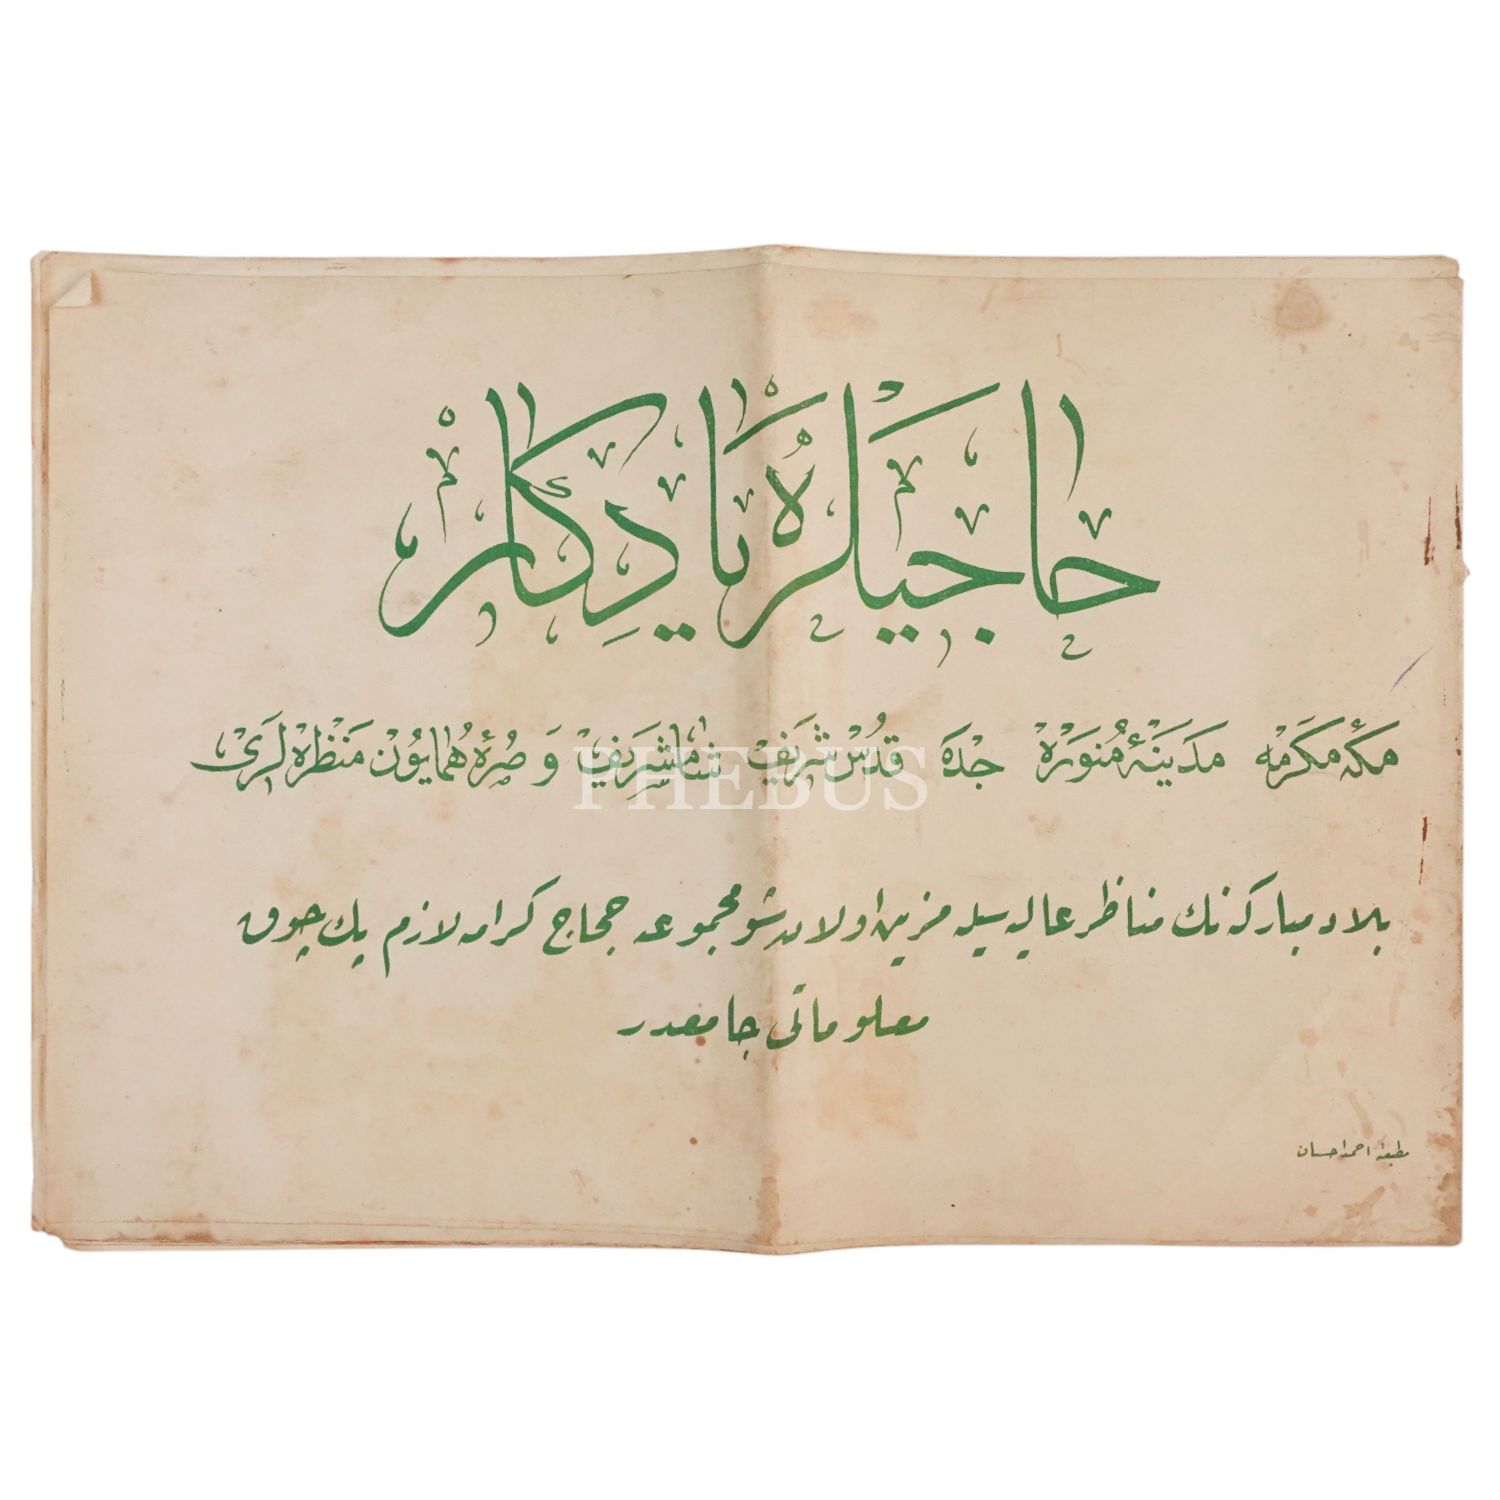 حاجیلره یادگار
مکۀ مکرمه مدینۀ منوره جده قدس شریف شام شریف و صرۀ همایون منظره لری
بلاد مبارکه نك مناظر عالیه سیله مزین اولان شو مجموعه حجاج کرامه لازم پك چوق
معلوماتی جامعدر
مطبعۀ احمد احسان
PHEBUS